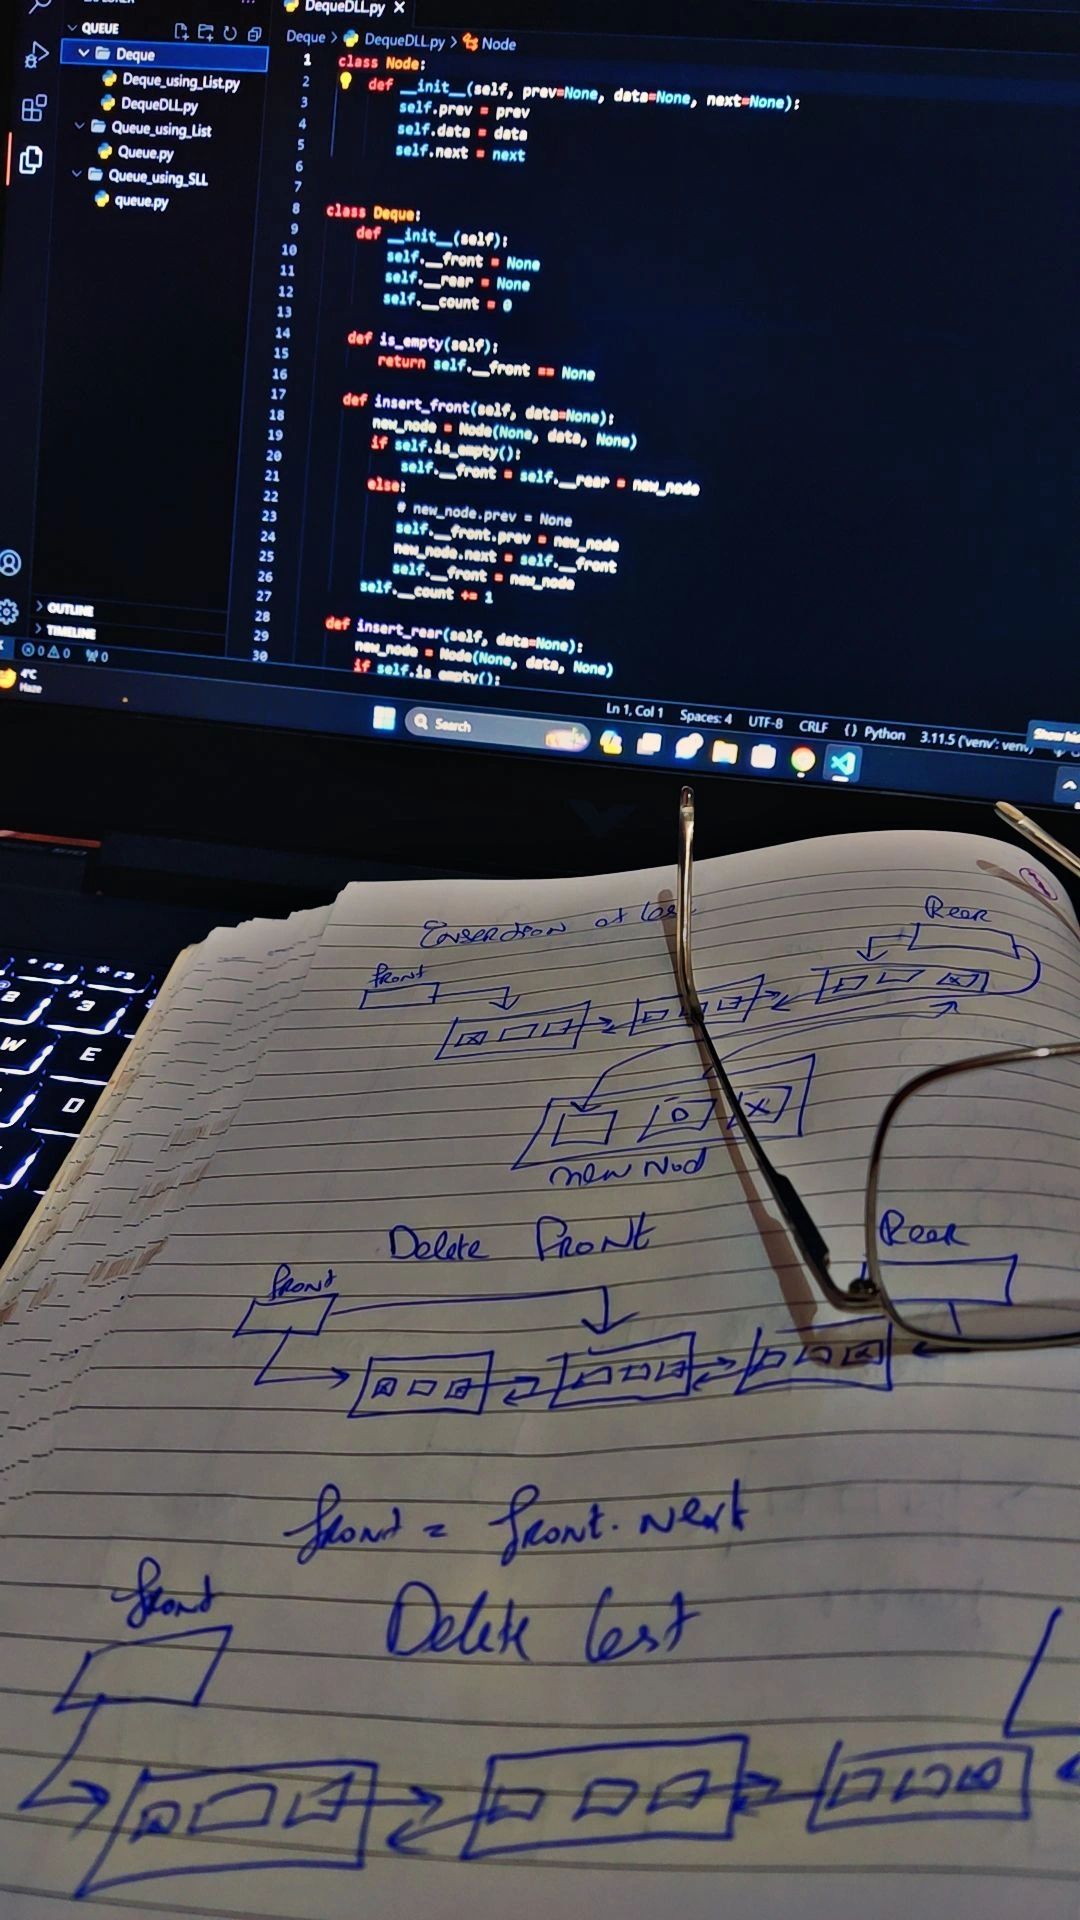 DequeDLL.py ×
QUEUE
Deque
Deque_using_List.py
DequeDLL.py
Queue_using_List
Queue.py
Queue_using_SLL
queue.py
OUTLINE
TIMELINE
Deque > DequeDLL.py > Node
1 class Node:
2 def __init__(self, prev=None, data=None, next=None):
3 self.prev = prev
4 self.data = data
5 self.next = next
6
7
8 class Deque:
9 def __init__(self):
10 self.__front = None
11 self.__rear = None
12 self.__count = 0
13
14 def is_empty(self):
15 return self.__front == None
16
17 def insert_front(self, data=None):
18 new_node = Node(None, data, None)
19 if self.is_empty():
20 self.__front = self.__rear = new_node
21 else:
22 # new_node.prev = None
23 self.__front.prev = new_node
24 new_node.next = self.__front
25 self.__front = new_node
26 self.__count += 1
27
28 def insert_rear(self, data=None):
29 new_node = Node(None, data, None)
30 if self.is_empty():
0 0 0
Ln 1, Col 1 Spaces: 4 UTF-8 CRLF {} Python 3.11.5 ('venv': venv)
4°C
Haze
Search
Show hi
F2 F3
2 # 3
W E
D
Insertion at
Rear
front
D X
new Nod
Delete Front
Rear
front
front = front.next
front
Delete last